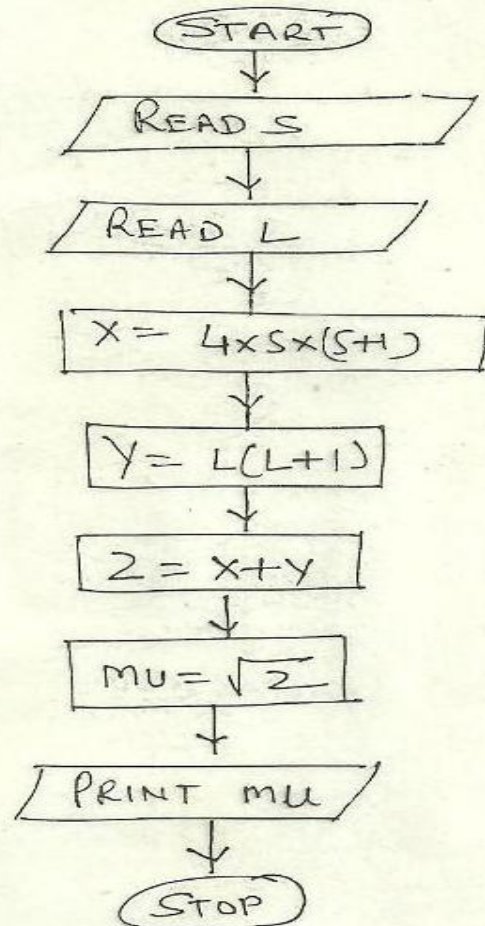 START
READ S
READ L
X = 4×S×(S+1)
Y = L(L+1)
Z = X+Y
MU = √Z
PRINT MU
STOP